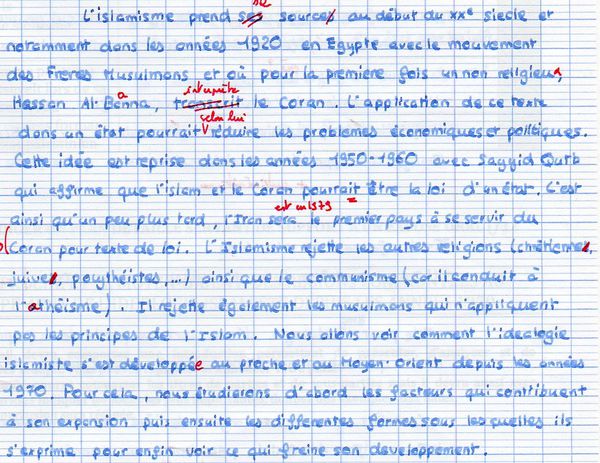 sa
L'islamisme prend ses sources au début du XXe siecle et
notamment dans les années 1920 en Egypte avec le mouvement
des Freres Musulmans et où pour la première fois un non religieux,
interprète
Hassan Al-Benna, transcrit le Coran. L'application de ce texte
a
selon lui
dans un état pourrait réduire les problèmes économiques et politiques.
Cette idée est reprise dans les années 1950-1960 avec Sayyid Qutb
qui affirme que l'islam et le Coran pourrait être la loi d'un état. C'est
est en 1979
ainsi qu'un peu plus tard, l'Iran sera le premier pays à se servir du
Coran pour texte de loi. L'Islamisme rejette les autres religions (chrétiennes,
juives, polythéistes,...) ainsi que le communisme (car il conduit à
l'athéisme). Il rejette également les musulmans qui n'appliquent
pas les principes de l'Islam. Nous allons voir comment l'ideologie
islamiste s'est développée au proche et au Moyen-Orient depuis les années
1970. Pour cela, nous étudierons d'abord les facteurs qui contribuent
à son expansion puis ensuite les differentes formes sous lesquelles ils
s'exprime pour enfin voir ce qui freine son developpement.